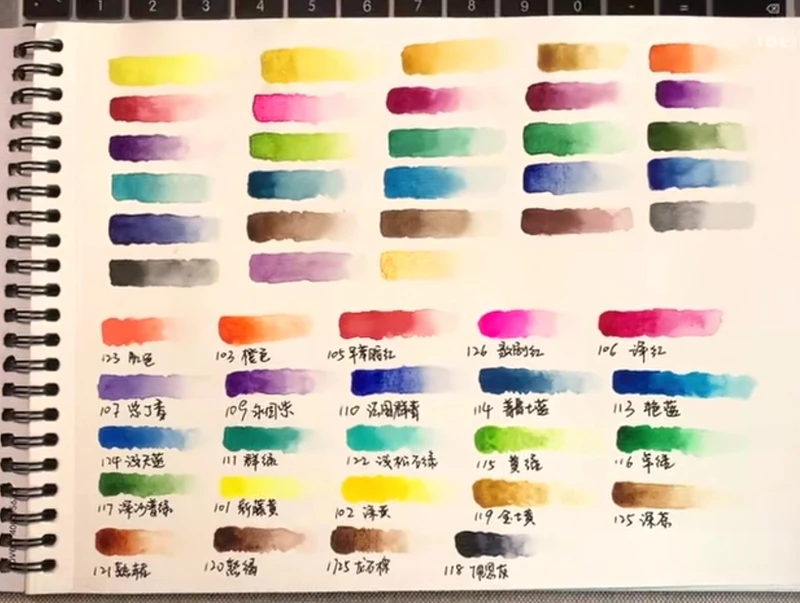 1 2 3 4 5 6 7 8 9 0 - =
123 肌色 103 橙色 105 苹果暗红 126 歌剧红 106 译红
107 紫丁香 109 永固紫 110 法国群青 114 普鲁士蓝 113 艳蓝
124 浅天蓝 111 群绿 122 浅松石绿 115 黄绿 116 草绿
117 深沙普绿 101 新藤黄 102 深黄 119 金土黄 125 深茶
121 熟赭 120 熟褐 1725 118 佩恩灰